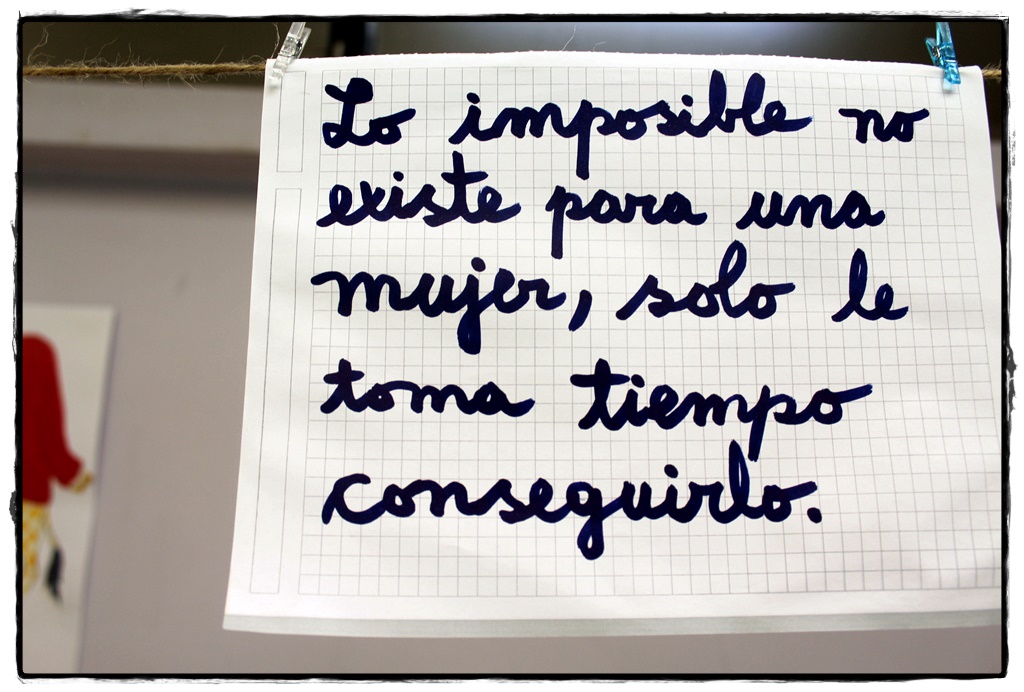 Lo imposible no
existe para una
mujer, solo le
toma tiempo
conseguirlo.